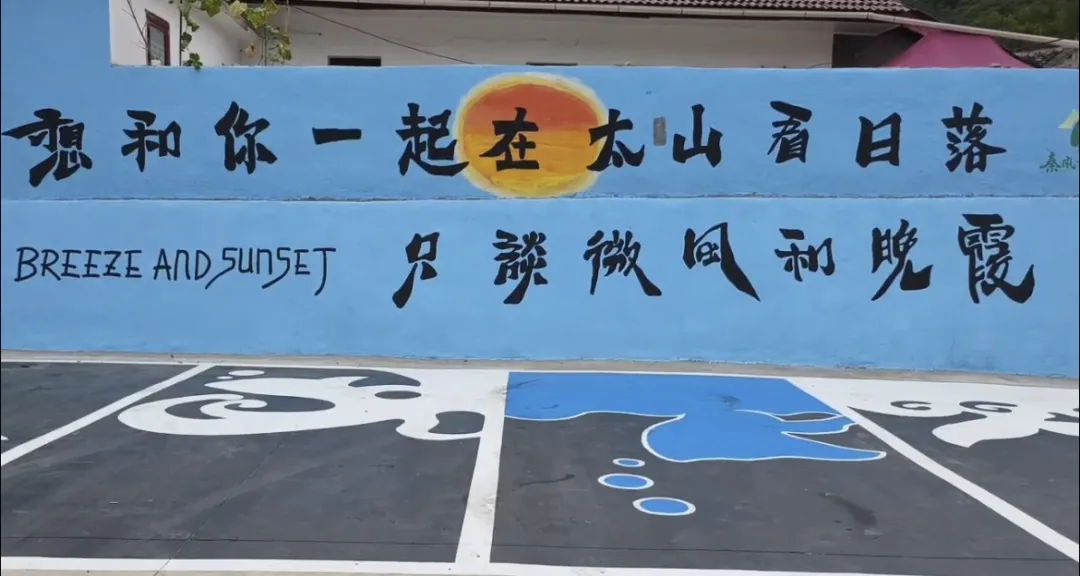 想和你一起在太山看日落
BREEZE AND SUNSET 只談微風和晚霞
秦风